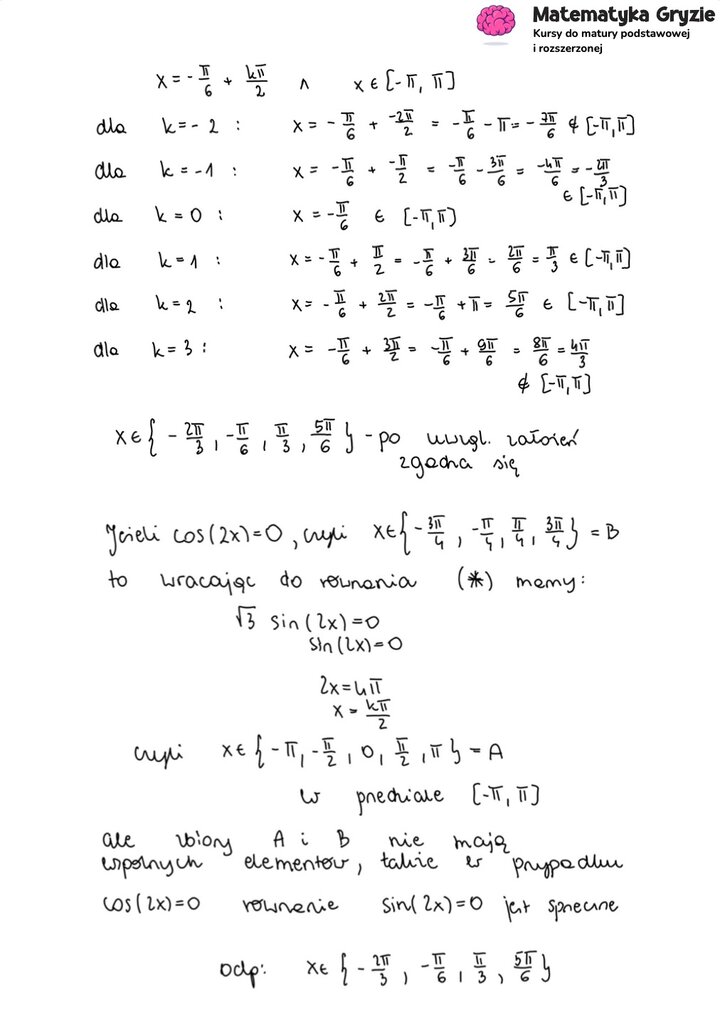 Matematyka Gryzie
Kursy do matury podstawowej
i rozszerzonej
x = -π/6 + kπ/2 ∧ x ∈ [-π, π]
dla k = -2 : x = -π/6 + -2π/2 = -π/6 - π = -7π/6 ∉ [-π, π]
dla k = -1 : x = -π/6 + -π/2 = -π/6 - 3π/6 = -4π/6 = -2π/3
∈ [-π, π]
dla k = 0 : x = -π/6 ∈ [-π, π]
dla k = 1 : x = -π/6 + π/2 = -π/6 + 3π/6 = 2π/6 = π/3 ∈ [-π, π]
dla k = 2 : x = -π/6 + 2π/2 = -π/6 + π = 5π/6 ∈ [-π, π]
dla k = 3 : x = -π/6 + 3π/2 = -π/6 + 9π/6 = 8π/6 = 4π/3
∉ [-π, π]
x ∈ { -2π/3, -π/6, π/3, 5π/6 } - po uwzgl. założeń
zgadza się
Jeżeli cos(2x) = 0, czyli x ∈ { -3π/4, -π/4, π/4, 3π/4 } = B
to wracając do równania (*) mamy:
√3 sin(2x) = 0
sin(2x) = 0
2x = kπ
x = kπ/2
czyli x ∈ { -π, -π/2, 0, π/2, π } = A
w przedziale [-π, π]
ale zbiory A i B nie mają
wspólnych elementów, także w przypadku
cos(2x) = 0 równanie sin(2x) = 0 jest sprzeczne
odp: x ∈ { -2π/3, -π/6, π/3, 5π/6 }